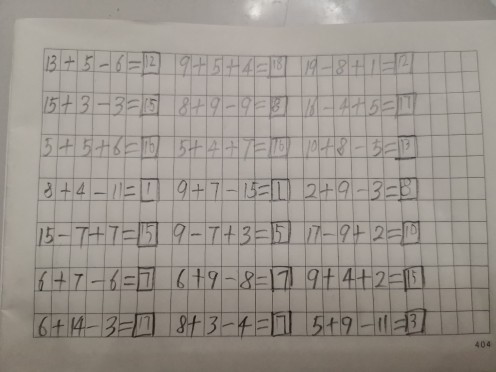 13+5-6=12 9+5+4=18 19-8+1=12
15+3-3=15 8+9-9=8 16-4+5=17
5+5+6=16 5+4+7=16 10+8-5=13
8+4-11=1 9+7-15=1 2+9-3=8
15-7+7=15 9-7+3=5 17-9+2=10
6+7-6=7 6+9-8=7 9+4+2=15
6+14-3=17 8+3-4=7 5+9-11=3
404